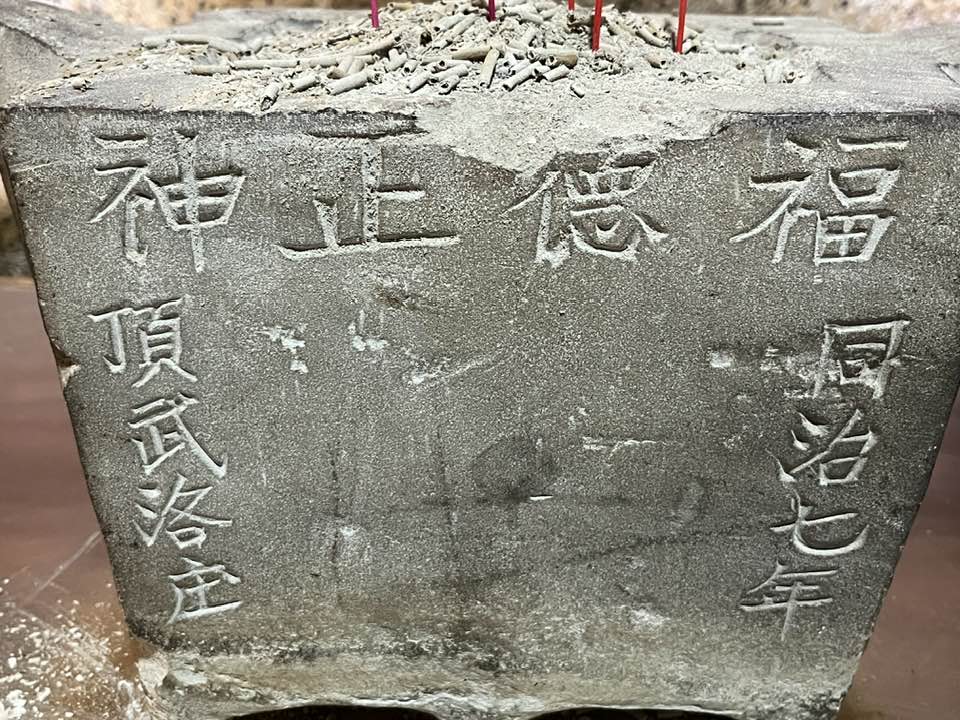 福德正神
同治七年
頂武洛庄